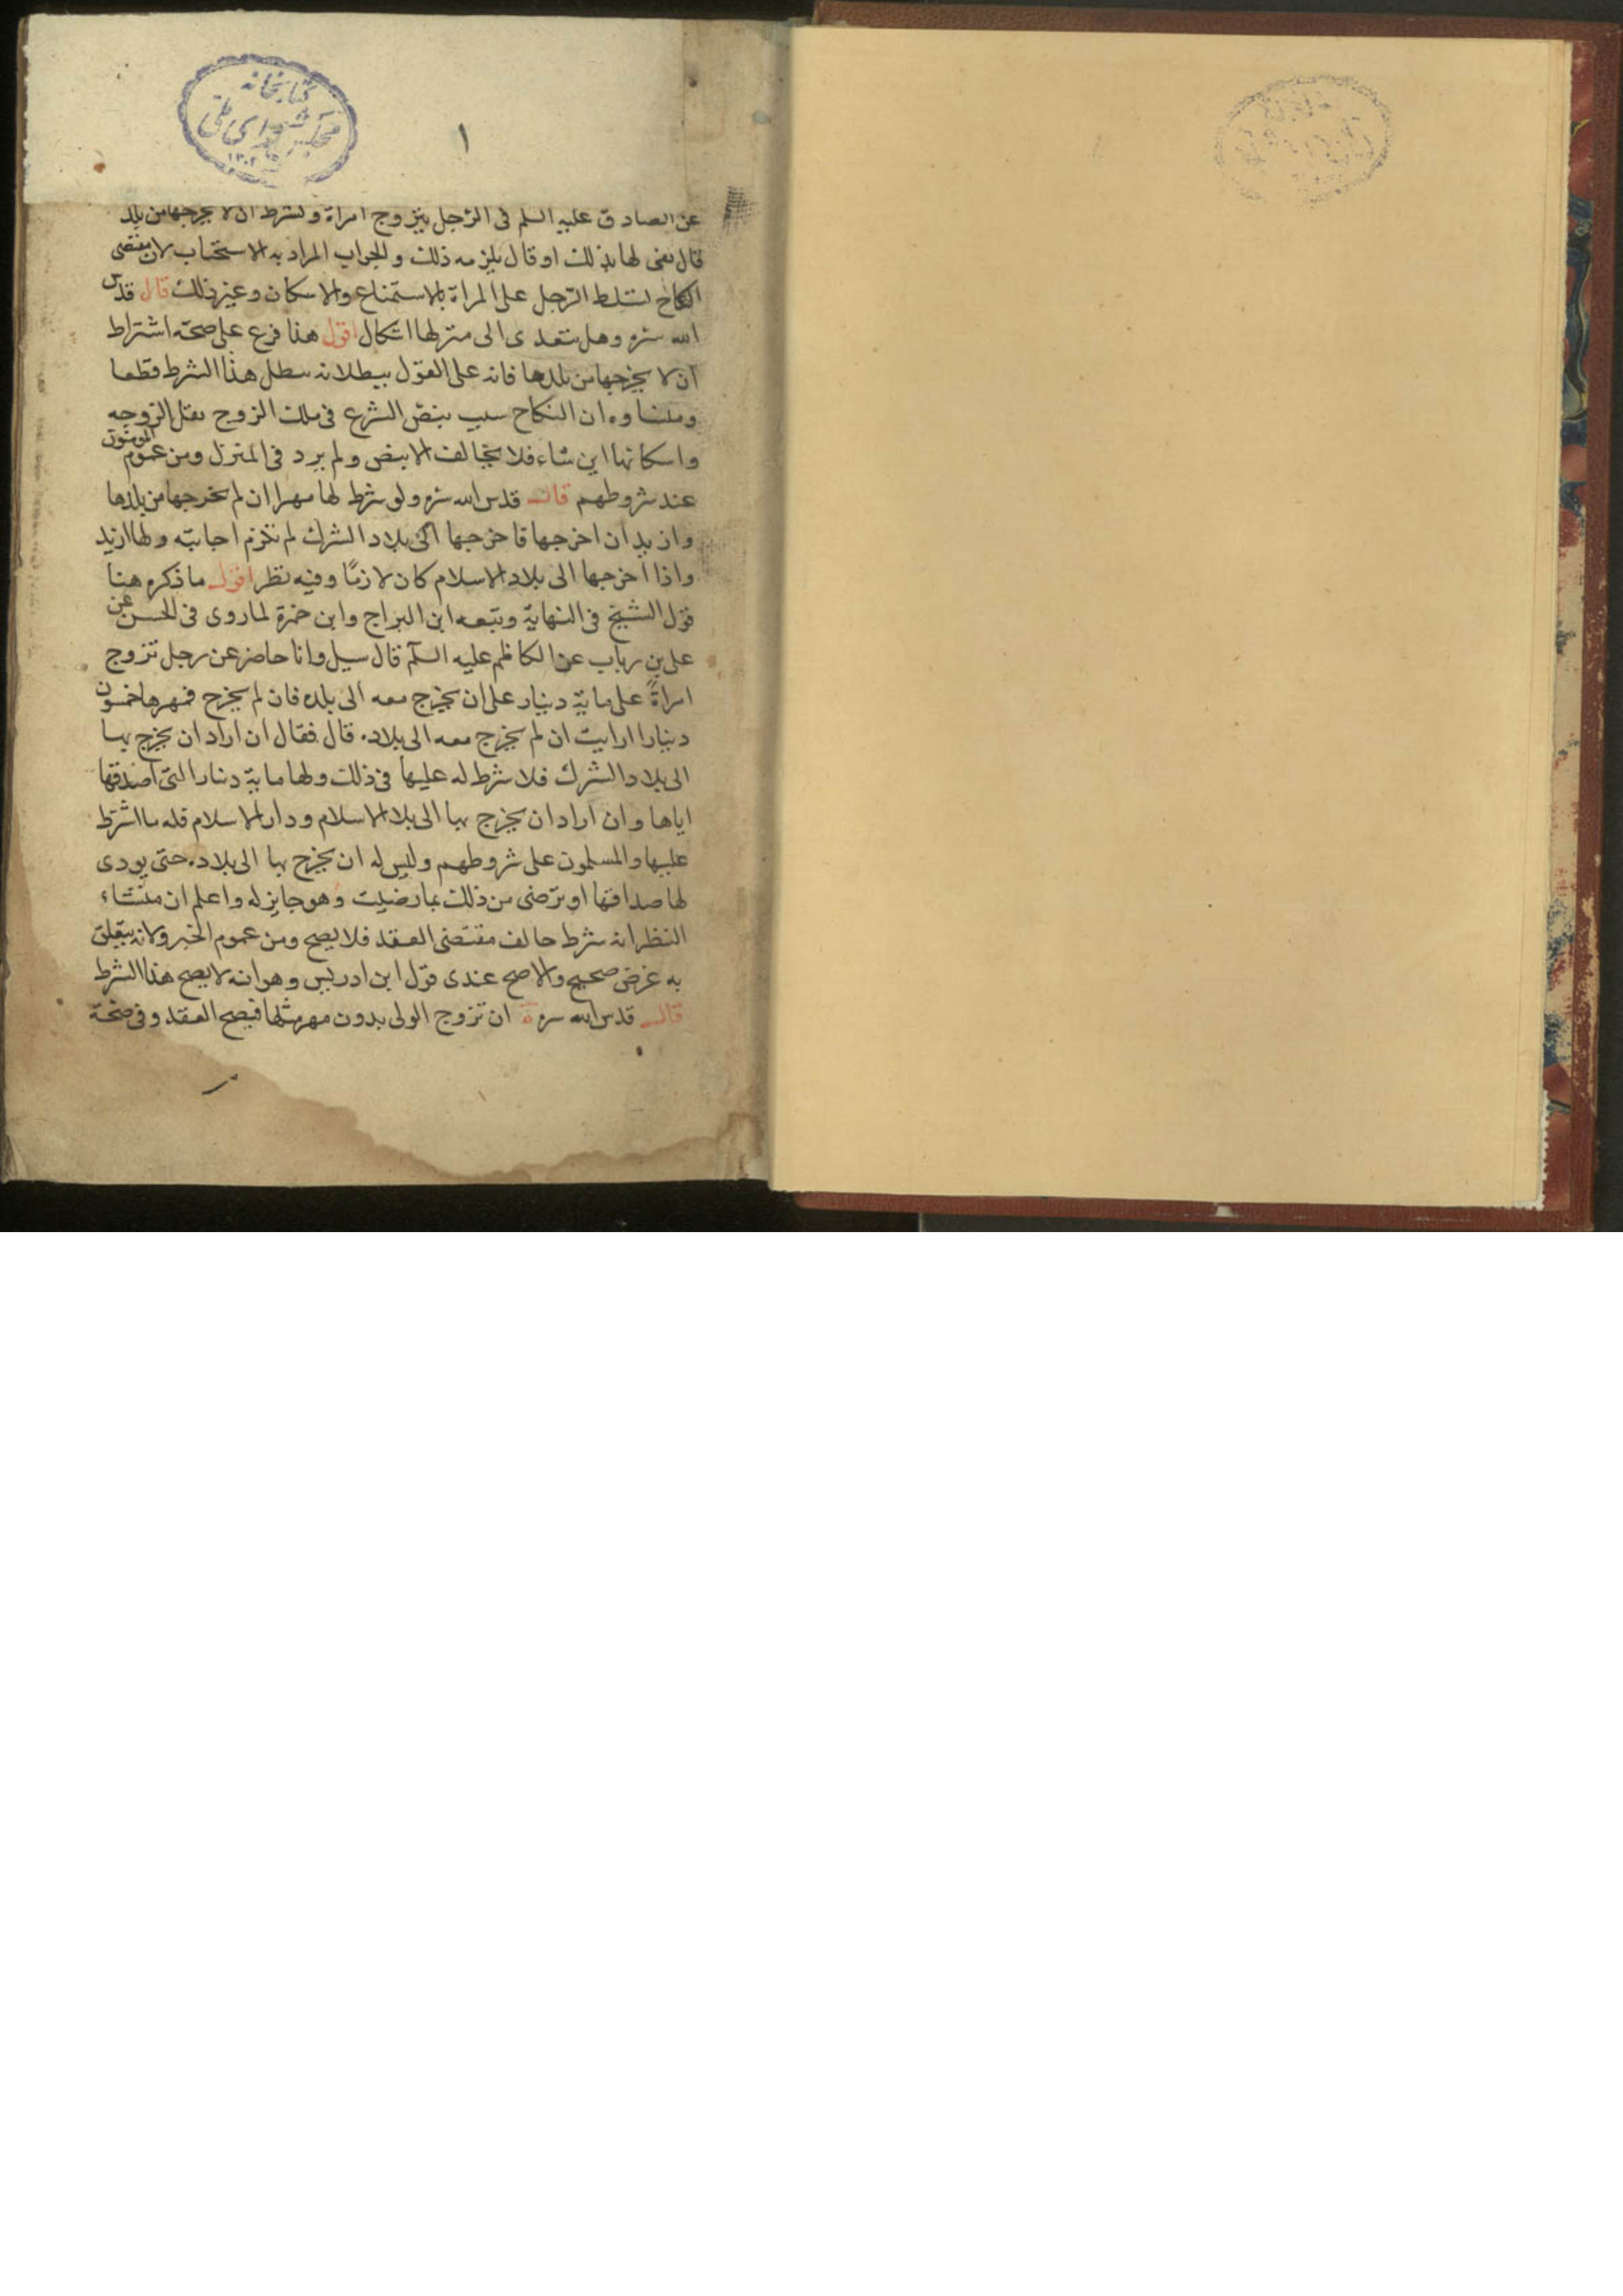 كتابخانه
مجلس شورای ملی
١٣٠٢
١
عن الصادق عليه السلم فى الرّجل يتزوج امراة ولشرط ان لا يخرجها من بلد
قال يفى لها بذلك او قال يلزمه ذلك والجواب المراد به الاستحباب لان مقتضى
النكاح تسلط الرّجل على المراة بالاستمتاع والاسكان وغير ذلك قال قدس
الله سره وهل يتعدى الى منزلها اشكال اقول هذا فرع على صحة اشتراط
ان لا يخرجها من بلدها فانه على القول ببطلانه يبطل هذا الشرط قطعا
ومنشاوه ان النكاح سبب بنصّ الشرع فى ملك الزوج نقل الزوجه
واسكانها اين شاء فلا يخالف الا بنص ولم يرد فى المنزل ومن عموم المومنون
عند شروطهم قال قدس الله سره ولو شرط لها مهرا ان لم يخرجها من بلدها
وازيد ان اخرجها فاخرجها الى بلاد الشرك لم تلزم اجابته ولها الزيد
واذا اخرجها الى بلاد الاسلام كان لازمًا وفيه نظر اقول ما ذكره هنا
قول الشيخ فى النهاية وتبعه ابن البراج وابن حمزة لما روى فى الحسن عن
على بن رياب عن الكاظم عليه السلم قال سيل وانا حاضر عن رجل تزوج
امراةً على ماية دينار على ان يخرج معه الى بلده فان لم يخرج فمهرها خمسون
دينارا ارايت ان لم يخرج معه الى بلاده قال فقال ان اراد ان يخرج بها
الى بلاد الشرك فلا شرط له عليها فى ذلك ولها ماية دينارا التى اصدقها
اياها وان اراد ان يخرج بها الى بلاد الاسلام ودار الاسلام فله ما اشترط
عليها والمسلمون على شروطهم وليس له ان يخرج بها الى بلاده حتى يودى
لها صداقها او ترضى من ذلك بما رضيت وهو جايز له واعلم ان منشاء
النظر انه شرط خالف مقتضى العقد فلا يصح ومن عموم الخبر ولانه يتعلق
به غرض صحيح والاصح عندى قول ابن ادريس وهو انه لا يصح هذا الشرط
قال قدس الله سره ان تزوج الولى بدون مهر مثلها فيصح العقد وفى صحة